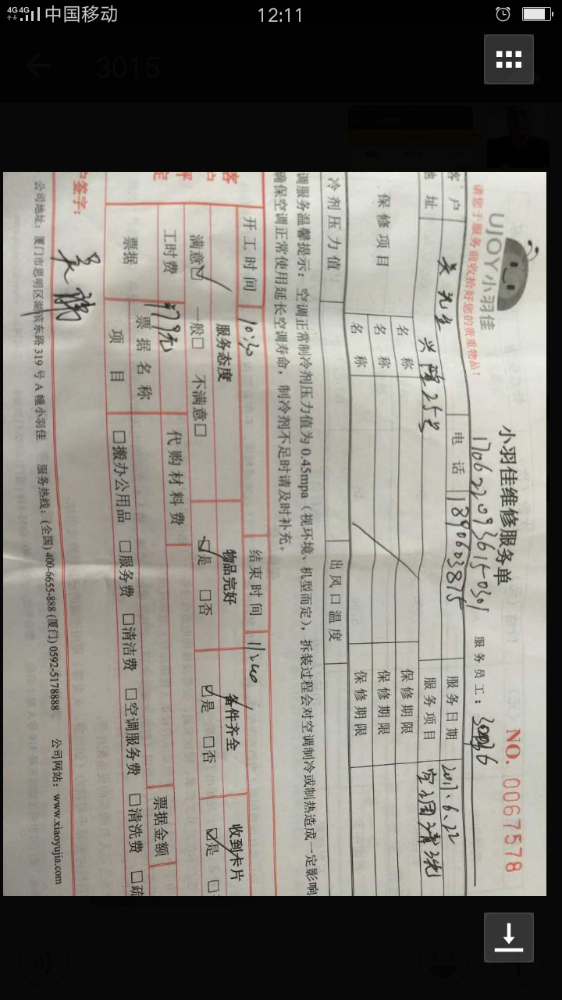 中国移动
12:11
3015
UJOY小羽佳
请您于服务前收拾好您的贵重物品!
小羽佳维修服务单
NO. 0067578
服务员工:
客户 吴先生 电话 服务日期 2017.6.22
地址 兴隆25号 服务项目 空调清洗
保修项目 名称 保修期限
名称 保修期限
名称 保修期限
冷剂压力值 出风口温度
调服务温馨提示:空调正常制冷剂压力值为0.45mpa(视环境、机型而定),拆装过程会对空调制冷或制热造成一定影响
确保空调正常使用延长空调寿命,制冷剂不足时请及时补充。
开工时间 结束时间
服务态度 物品完好 备件齐全 收到卡片
满意 一般 不满意 是 否 是 否 是
工时费 代购材料费
票据 票据名称 票据金额
项目 搬办公用品 服务费 清洁费 空调服务费 清洗费 疏
户签字:
公司地址:厦门市思明区湖滨东路319号A幢小羽佳 服务热线:(全国)400-6655-888(厦门)0592-5178888 公司网站:www.xiaoyujia.com